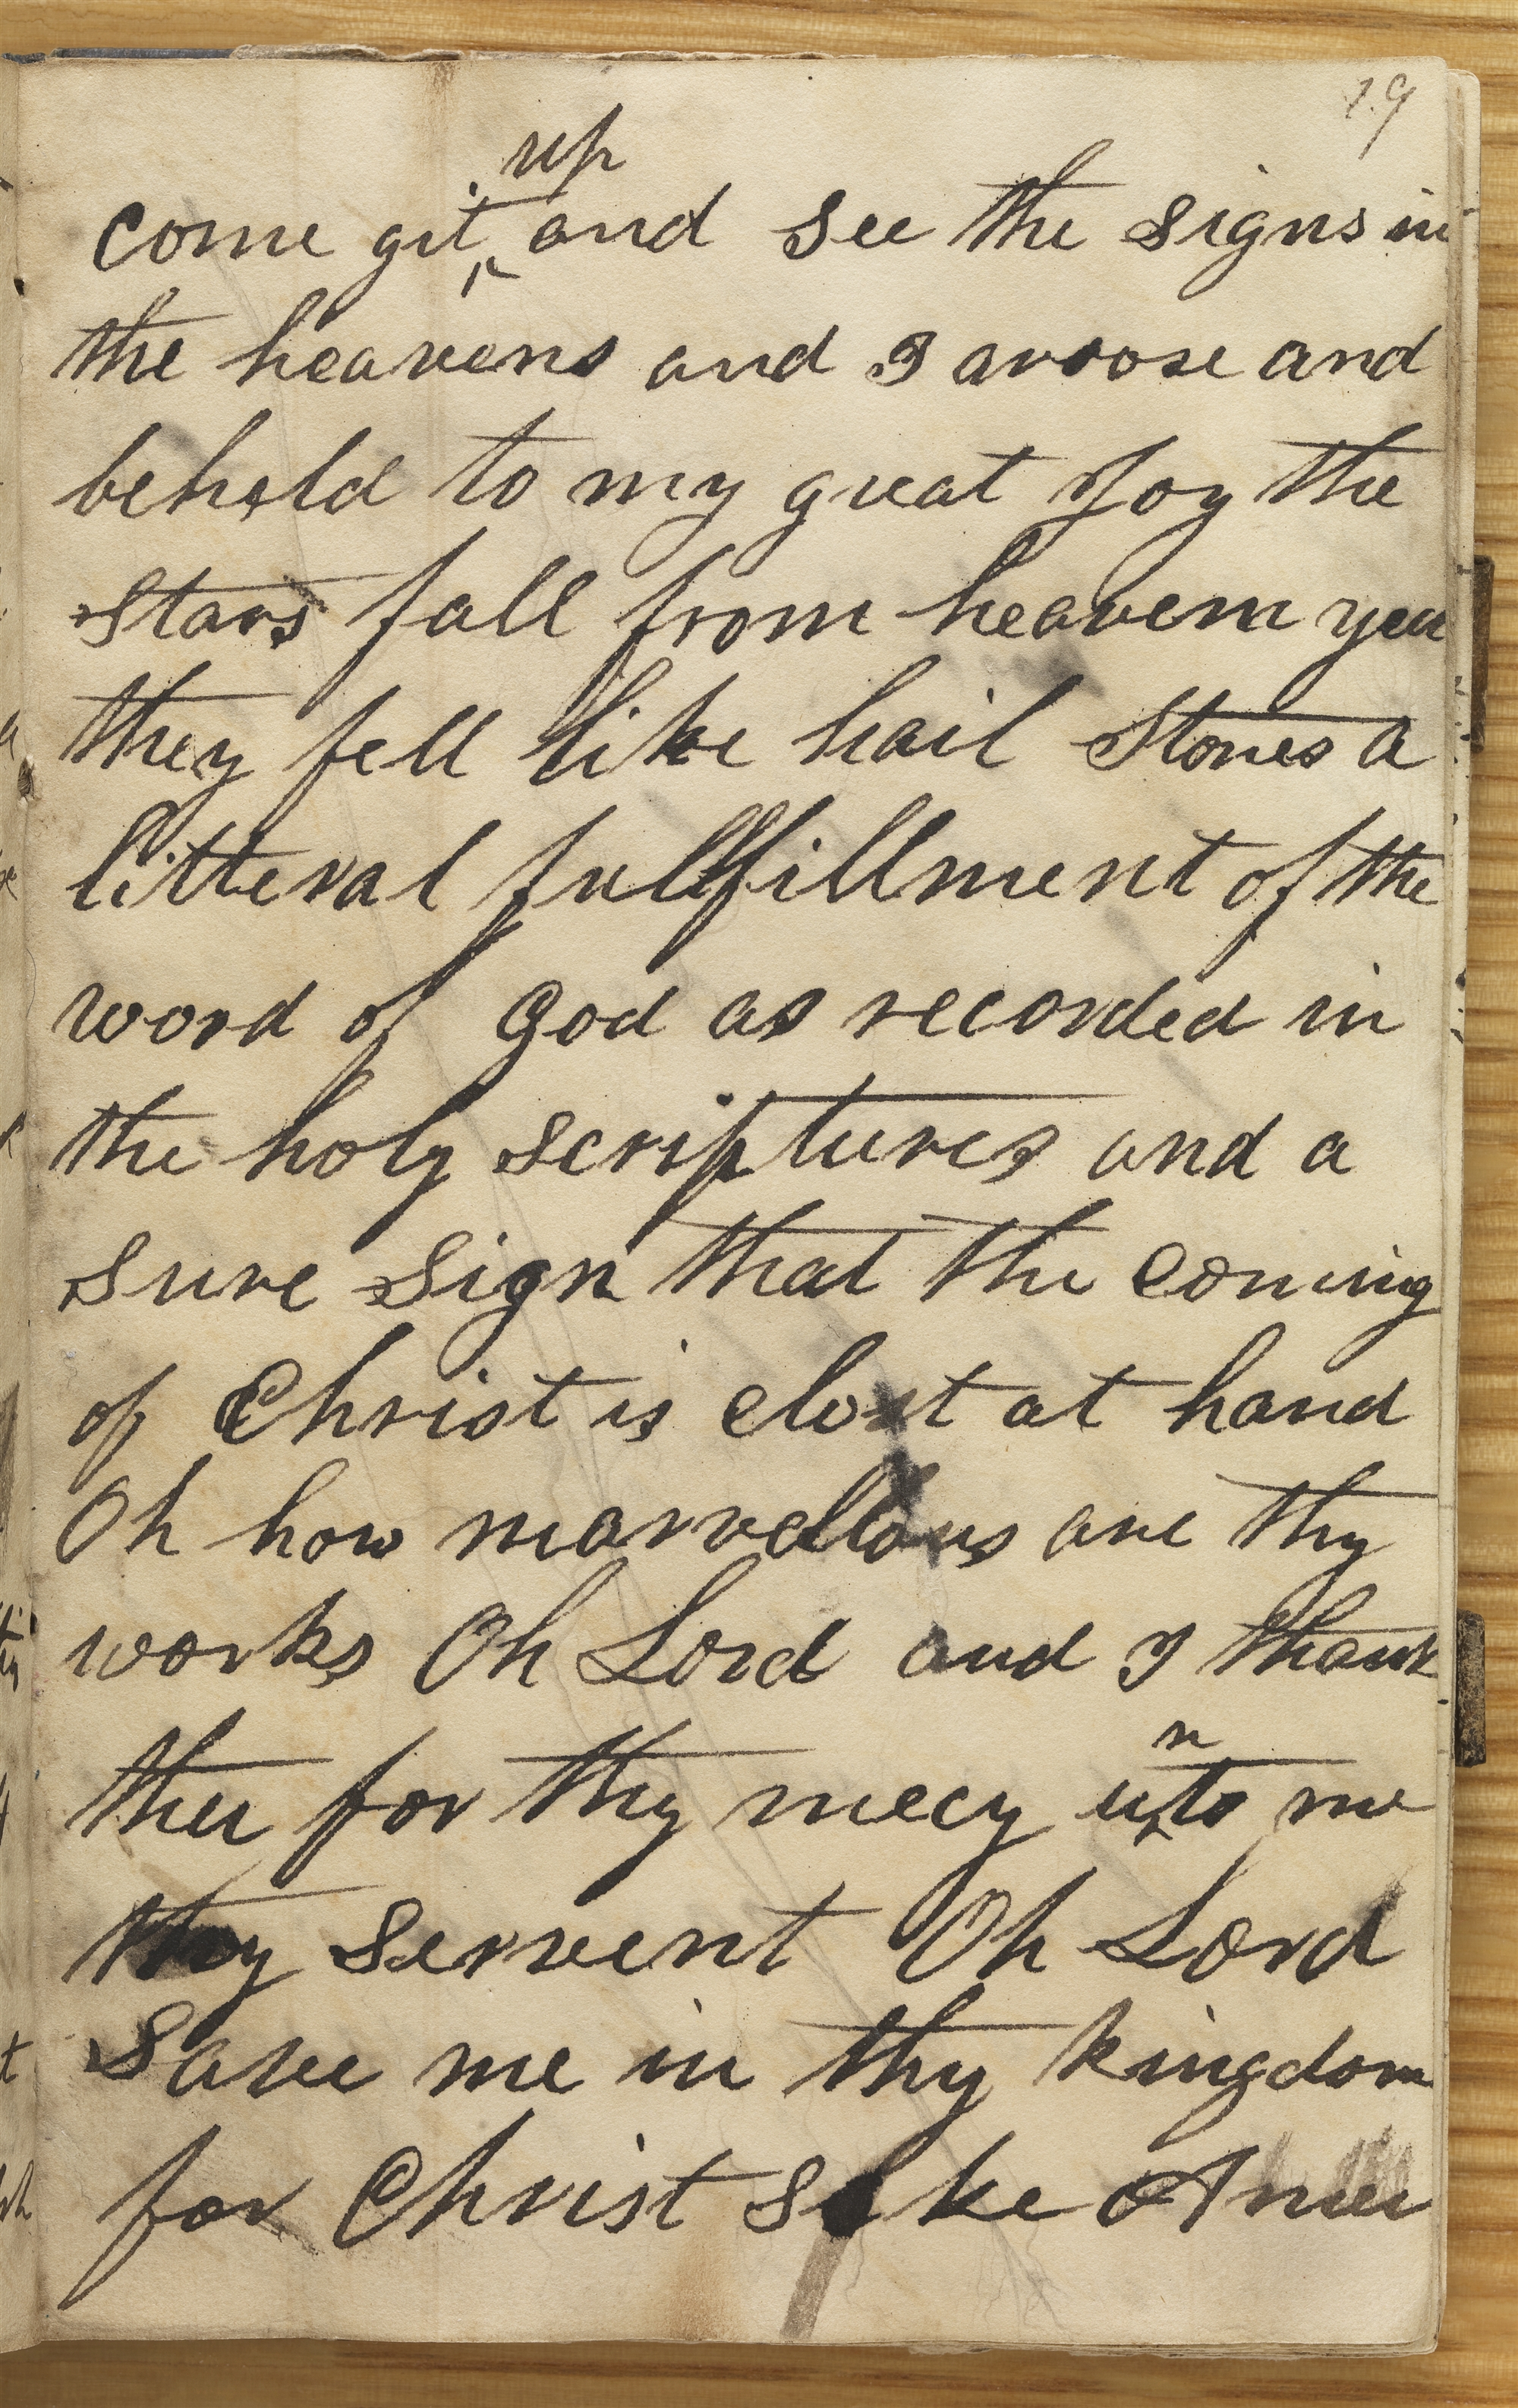 19
come git up and see the signs in
the heavens and I aroose and
beheld to my great Joy the
Stars fall from heavem yea
they fell like hail Stones a
litteral fullfillment of the
word of God as recorded in
the holy scriptures and a
Sure Sign that the coming
of Christ is clost at hand
Oh how marvellous are thy
works Oh Lord and I thank
thee for thy mecy unto me
thy Servent Oh Lord
Save me in thy kingdom
for Christ Sake Amen